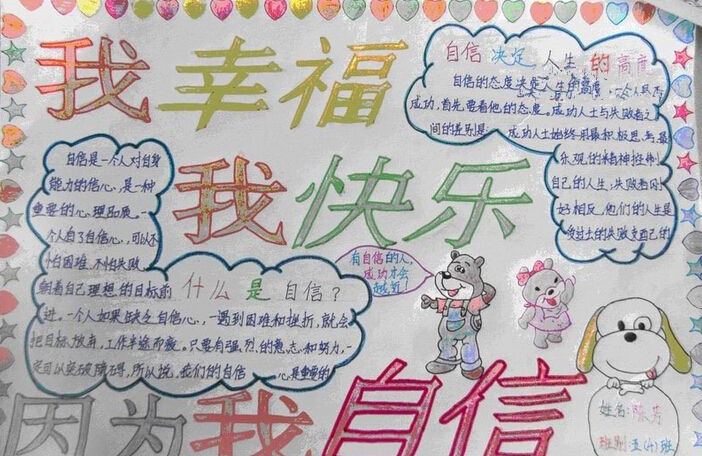 我幸福
我快乐
因为我自信
自信决定人生的高度
自信的态度决定人生的高度,一个人能否
成功,首先要看他的态度。成功人士与失败者之
间的差别是:成功人士始终用最积极思考,最
乐观的精神控制
自己的人生,失败者则
好相反,他们的人生是
受过去的失败支自己的
自信是一个人对自身
能力的信心,是一种
重要的心理品质。一
个人有了自信心,可以不
怕困难,不怕失败,
朝着自己理想的目标前
什么是自信?
进。一个人如果缺乏自信心,一遇到困难和挫折,就会
把目标放弃,工作半途而废。只要有强烈的意志和努力,一
定可以突破障碍,所以说,我们的自信 心是重要的
有自信的人,
成功才会
越近!
姓名:陈芳
班别:五(4)班